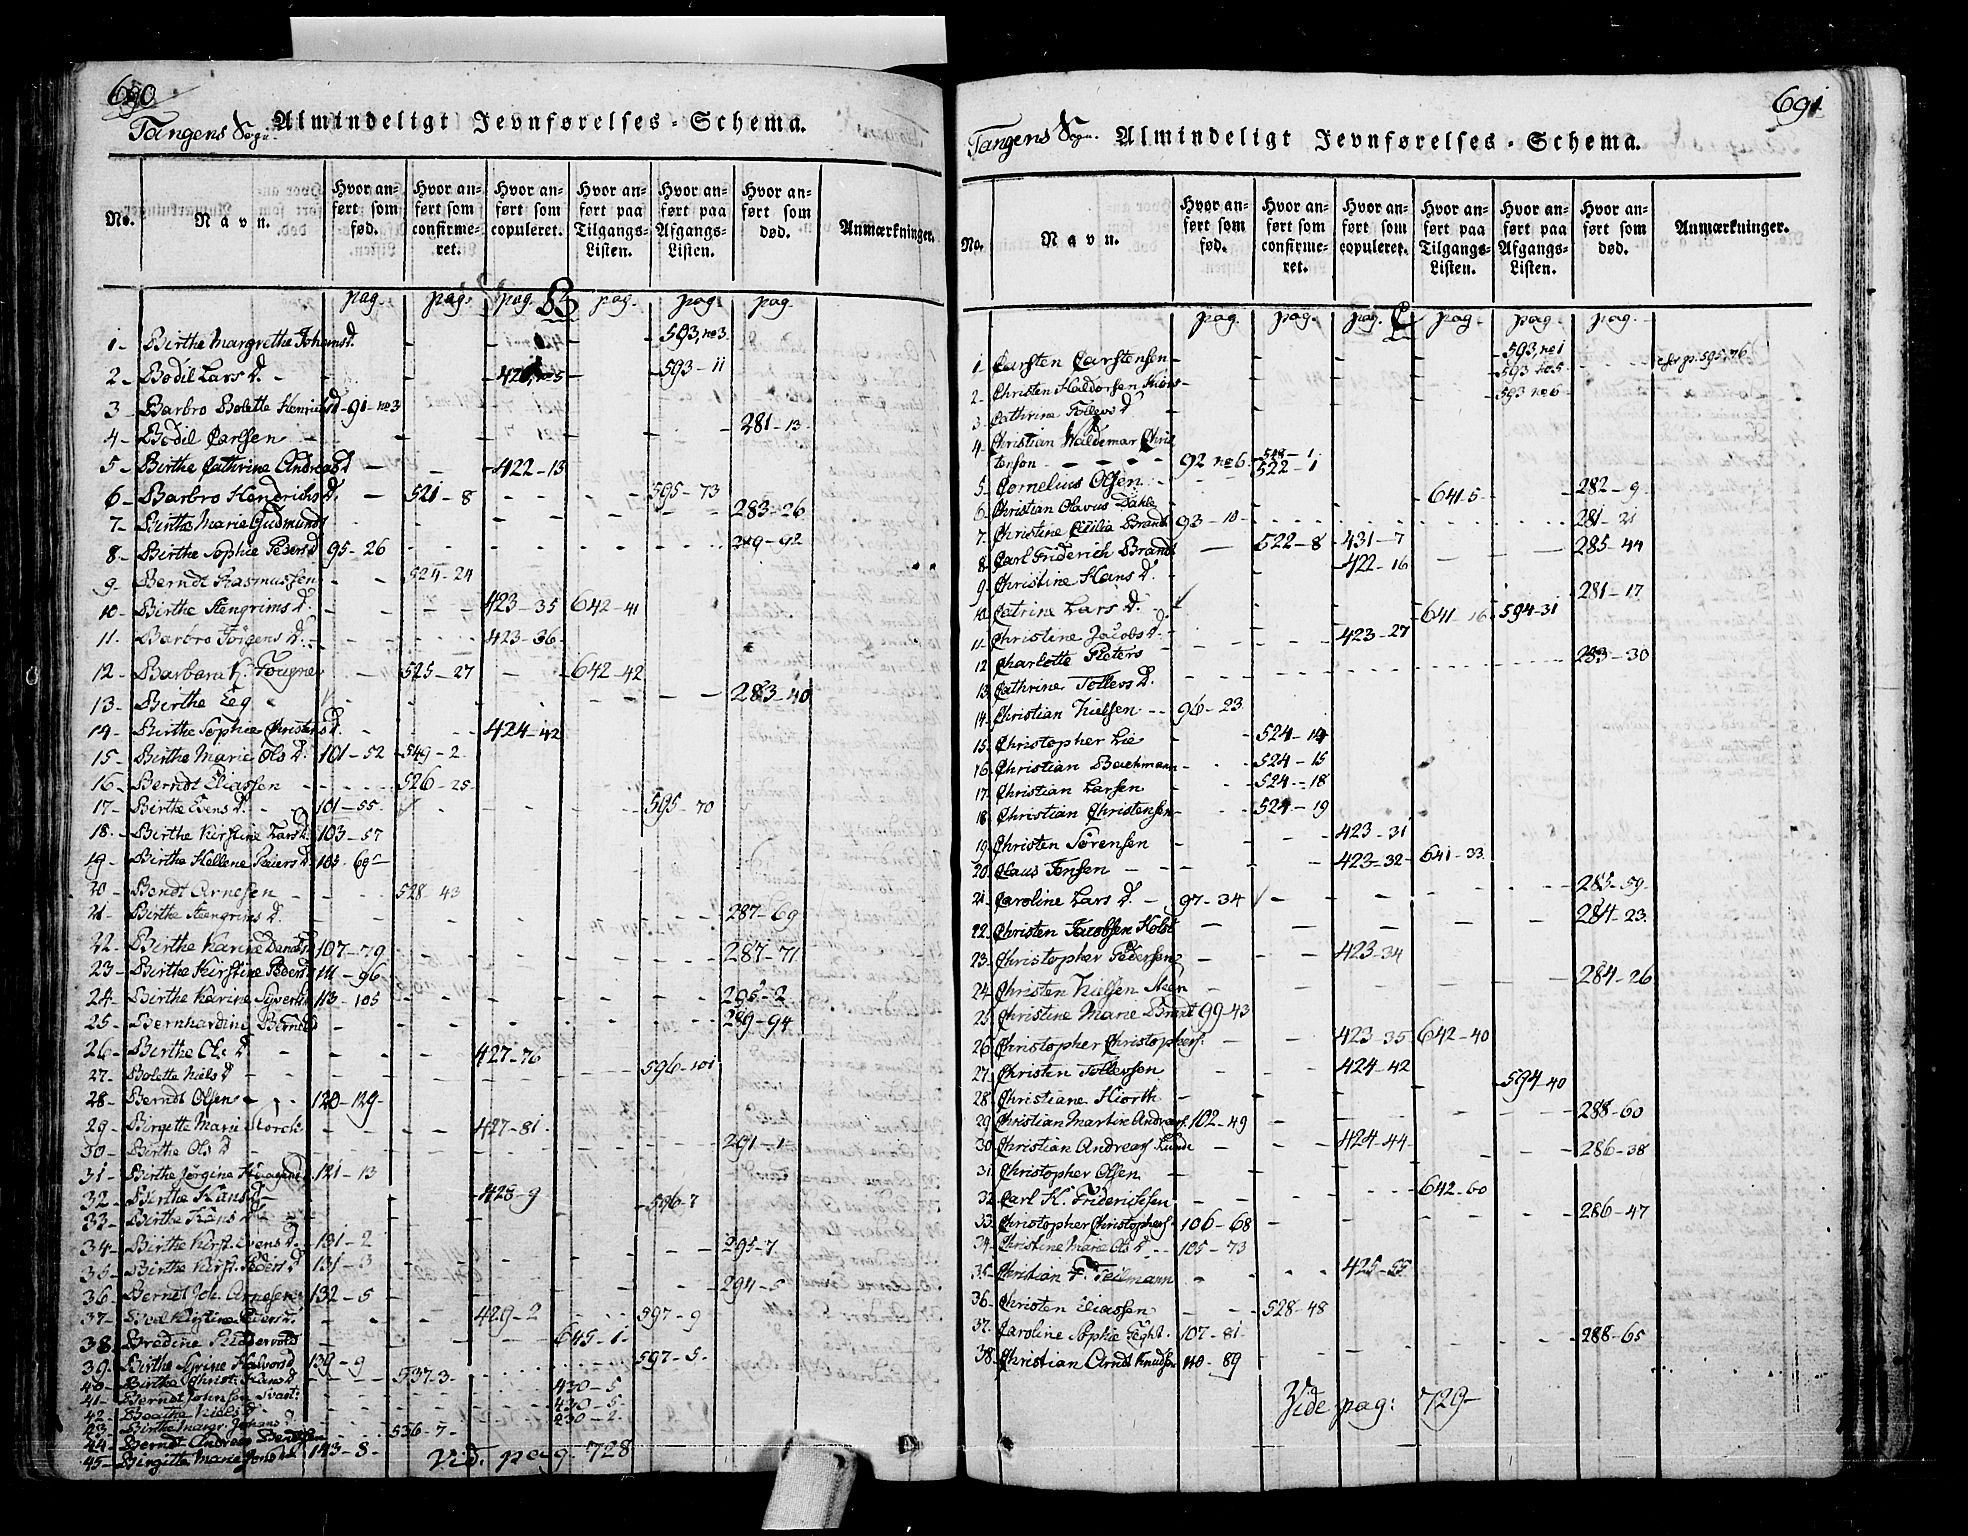 690
Tangens Sogn. Almindeligt Jevnførelses-Schema.
No. | Navn. | Hvor anført som fød. | Hvor anført som confirmeret. | Hvor anført som copuleret. | Hvor anført paa Tilgangs-Listen. | Hvor anført paa Afgangs-Listen. | Hvor anført som død. | Anmærkninger.
pag. pag. pag. B pag. pag. pag.
1- Birthe Margrethe Johansd. 593, no 3.
2- Bodil Lars d. 593-11
3- Barbro Bolette 91-no 3
4- Bodil Carlsen 281-13
5- Birthe Cathrine Andreasd 422-13
6- Barbro Hendrichs d. 521-8 595-73
7- Birthe Marie Gudmunds 283-26
8- Birthe Sophie Peders d 95-26
9- Berndt Rasmussen 524-24
10- Birthe Stengrims d. 423-35 642-41
11- Barbro Jörgens d. 423-36
12- Barbara K. Fougner 525-27 642-42
13- Birthe Eeg 283-40
14- Birthe Sophie Christens d. 424-42
15- Birthe Marie Ols d. 101-52 549-2
16- Berndt Eliassen 526-25
17- Birthe Evens d. 101-55 595-70
18- Birthe Kirstine Lars d. 103-57
19- Birthe Hellene Peiers d.
20- Bendt Arnesen 528-43
21- Birthe Stengrims d. 287-69
22- Birthe Karine Danielsd 107-79 287-71
23- Birthe Kirstine Peders d 111-96
24- Birthe Karine 113-105 295-2
25- Bernhardine Berntsd 289-94
26- Birthe Ols d 427-76
27- Bolette Niels d 596-101
28- Berndt Olsen 120-129
29- Birgette Marie Storck 427-81
30- Birthe Ols d 291-1
31- Birthe Jörgine 121-13
32- Birthe Hans d 428-9
33- Birthe Hans d 596-7
34- Birthe Kirst. Evens d. 131-2 295-7
35- Birthe Kirst. Peders d 131-3
36- Bernt Joh. Arnesen 132-5 294-5
37- Kirstine Peders d. 429-2 597-9
38- Riddervold 645-1
39- Birthe Syrine Halvorsd 139-9 597-5
40- Birthe Christ. Hans d. 537-3 430-5
41- Berndt Johnsen 430-5
42- Beathe Niels d. 430-2
43- Birthe Margr. Johans d. 536-7
44- Berndt Andreas Berntsen
45- Birgitte Marie 143-8
Vid. pag. 728
691
Tangens Sogn. Almindeligt Jevnførelses-Schema.
No. | Navn. | Hvor anført som fød. | Hvor anført som confirmeret. | Hvor anført som copuleret. | Hvor anført paa Tilgangs-Listen. | Hvor anført paa Afgangs-Listen. | Hvor anført som død. | Anmærkninger.
pag. pag. pag. C pag. pag. pag.
1 Carsten Carstensen 593, no 1 595, 76
2. Christen Haldorsen 593 no 5
3. Cathrine Tollevs d 593 no 6
4. Christian Waldemar Christensen 92 no 6 522-1
5. Cornelius Olsen 282-9
6. Christian Olavus Dahle 641-5 281-21
7. Christine Cecilia Brandt 93-10
8. Carl Friderich Brandt 522-8 431-7 285-44
9. Christine Hans d. 422-16
10. Catrine Lars d. 281-17
11. Christine Jacobs d. 641-16 594-31
12 Charlotte Pieters 423-27
13. Cathrine Tollevs d. 283-30
14. Christian Nielsen 96-23
15. Christopher Lie 524-14
16. Christian Bachmann 524-15
17. Christian Larsen 524-18
18 Christian Christensen 524-19
19. Christen Sörensen 423-31
20. Claus Jensen 423-32 641-33
21. Caroline Lars d. 97-34 285-59
22. Christen Jacobsen Holst 284-23
23. Christopher Pedersen 423-34
24. Christen Nielsen 284-26
25. Christine Marie Brandt 99-43
26. Christopher Christophers. 423-35 642-40
27. Christen Tollevsen 424-42
28 Christiane Hiorth 594-40
29. Christian Martin Andreas. 102-49 288-60
30. Christian Andreas Lunde 424-44 286-38
31. Christopher Olsen
32. Carl H. Friderichsen 642-60
33. Christopher Christophers. 106-68 286-47
34. Christine Marie Ols d. 105-73
35. Christian F. Teilmann 425-55
36. Christen Eliassen 528-48
37. Caroline Sophie Feght. 107-81 288-65
38. Christian Arndt Knudsen 110-89
Vide pag: 729